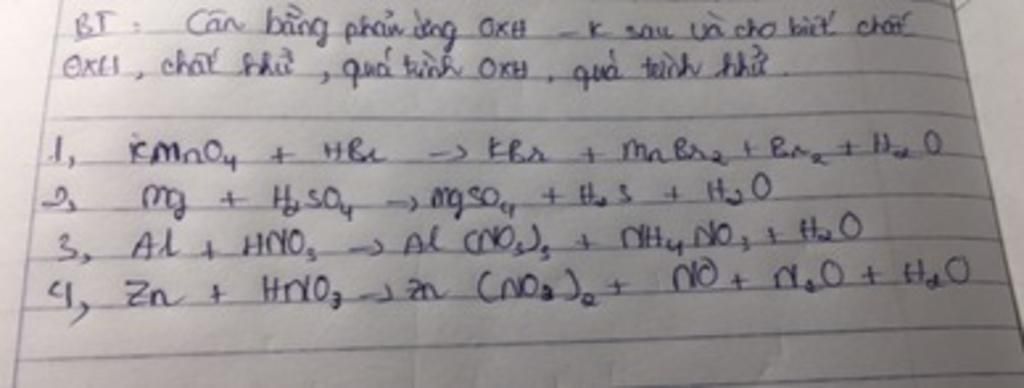 BT : Cân bằng phản ứng OXH - K sau và cho biết chất
OXH, chất khử, quá trình OXH, quá trình khử.
1, KMnO4 + HBr → KBr + MnBr2 + Br2 + H2O
2, Mg + H2SO4 → MgSO4 + H2S + H2O
3, Al + HNO3 → Al(NO3)3 + NH4NO3 + H2O
4, Zn + HNO3 → Zn(NO3)2 + NO + N2O + H2O